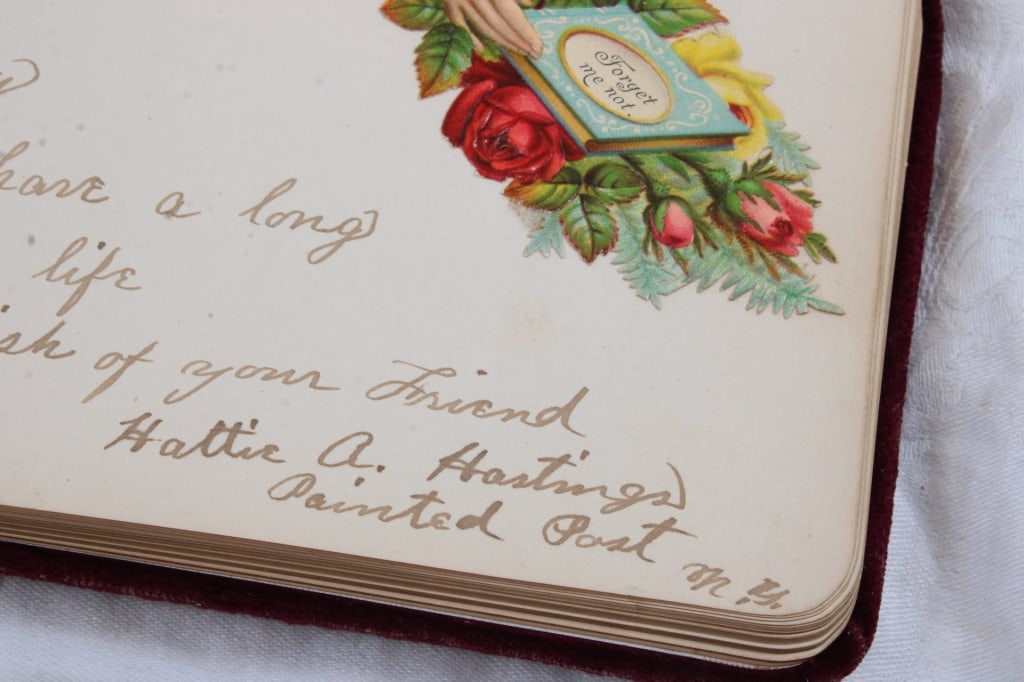 Forget
me not.
have a long
life
of your Friend
Hattie A. Hastings
Painted Post
N.Y.